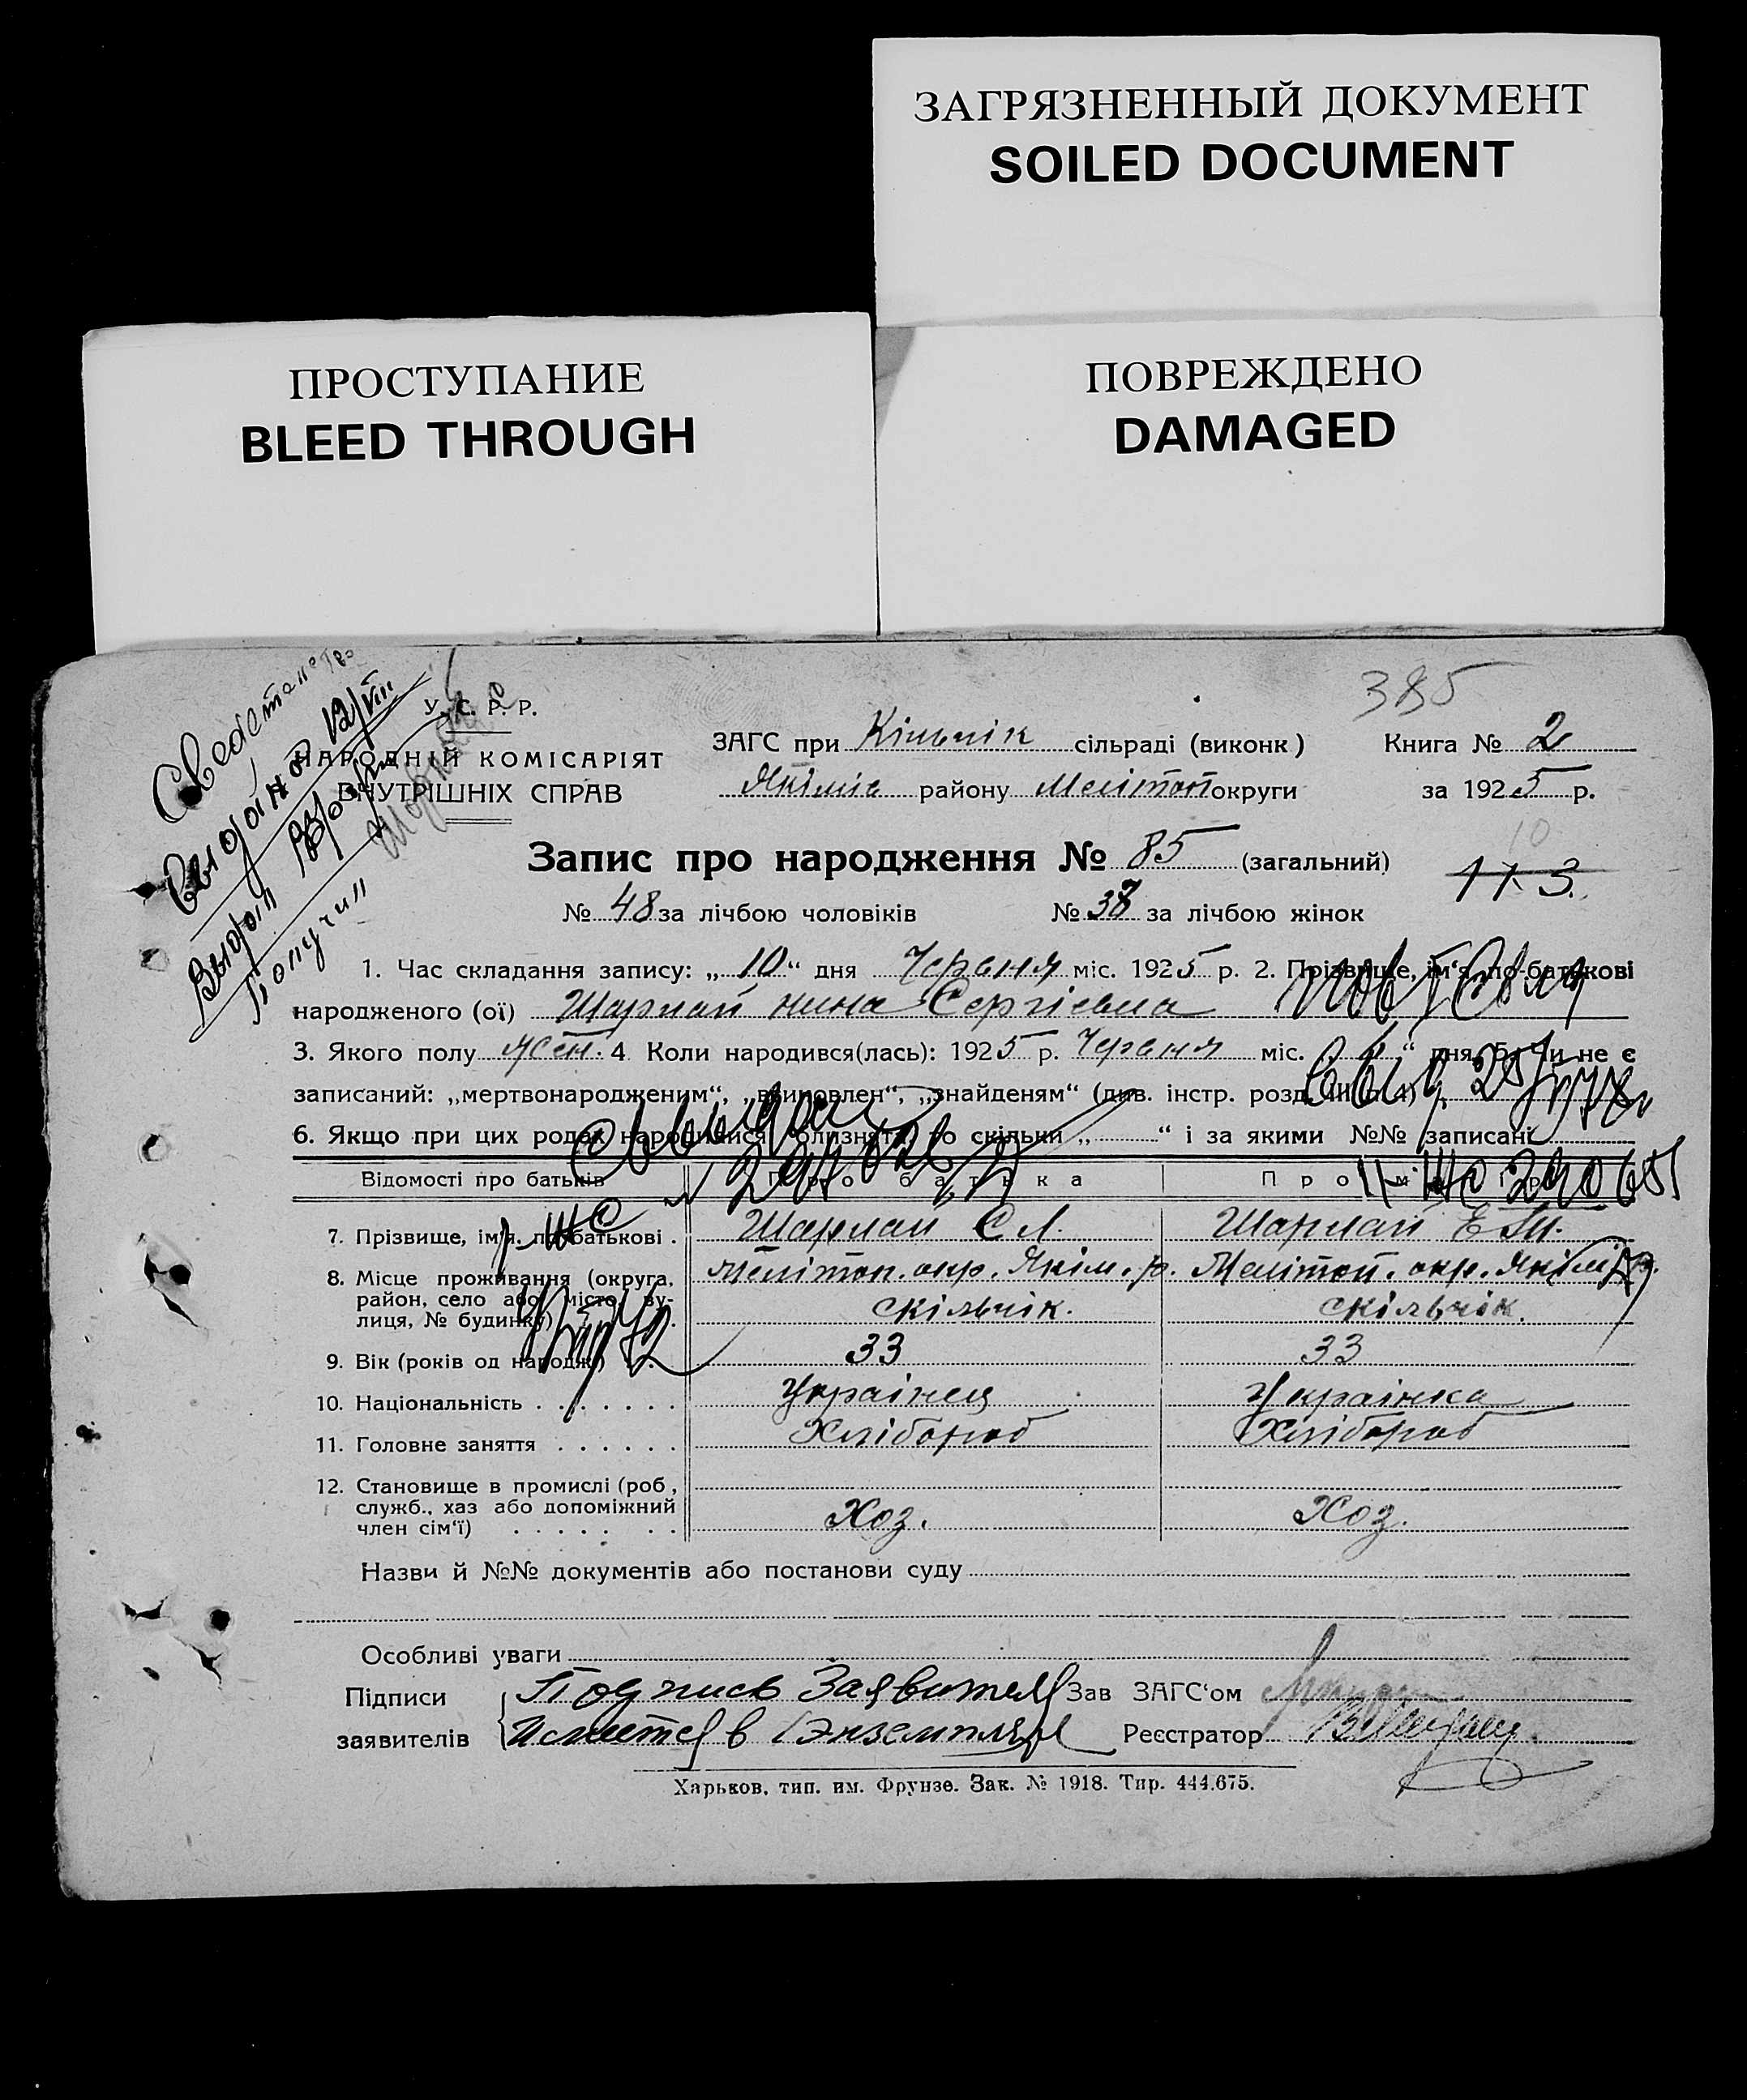 ЗАГРЯЗНЕННЫЙ ДОКУМЕНТ
SOILED DOCUMENT
ПРОСТУПАНИЕ
BLEED THROUGH
ПОВРЕЖДЕНО
DAMAGED
385
У. С. Р. Р.
НАРОДНІЙ КОМІСАРІЯТ
ВНУТРІШНІХ СПРАВ
ЗАГС при Кільчік сільраді (виконк) Книга № 2
Якімів району Мелітоп округи за 1925 р.
Запис про народження № 85 (загальний)
10
113.
№ 48 за лічбою чоловіків № 37 за лічбою жінок
1. Час складання запису: „10“ дня Червня міс. 1925 р. 2. Прізвище, ім‘я, по-батькові
народженого (ої) Шарлай нина Сергіевна
3. Якого полу жен. 4 Коли народився(лась): 1925 р. Червня міс. „6“ дня, 5. Чи не є
записаний: „мертвонародженим“, „вчиновлен“, „знайденям“ (див. інстр. розд.
6. Якщо при цих родах народилися близнята, то скільки „ “ і за якими №№ записані
Відомості про батьків Про батька Про матір
7. Прізвище, ім‘я, по батькові . Шарлай С Л. Шарлай Е М.
8. Місце проживання (округа, Мелітоп. окр. Якім. р. Мелітоп. окр. Якім р.
район, село або місто, ву-
лиця, № будинку) скільчік. скільчік.
9. Вік (років од народж) 33 33
10. Національність . . . . . . . Українец Українка
11. Головне заняття . . . . . . Хлібороб Хлібороб
12. Становище в промислі (роб,
служб., хаз або допоміжний
член сім‘ї) Хоз. Хоз.
Назви й №№ документів або постанови суду
Особливі уваги
Підписи Подпись Заявителя Зав ЗАГС‘ом
заявителів Имеется в 1 экземпляре Реєстратор
Харьков, тип. им. Фрунзе. Зак. № 1918. Тир. 444.675.